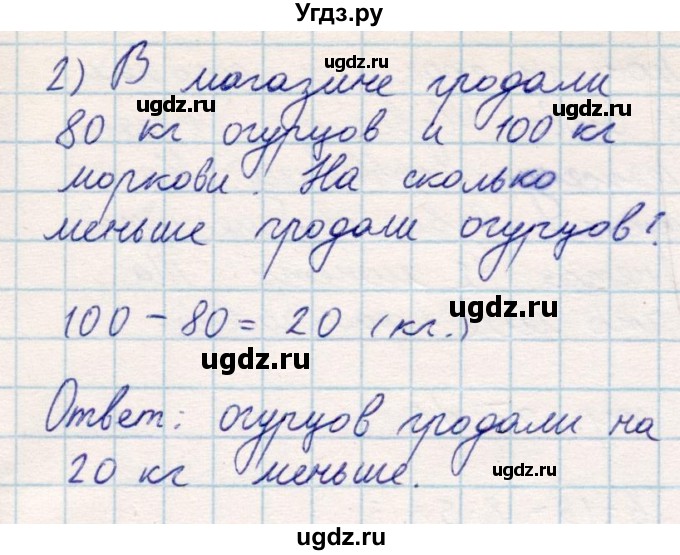 Угдз.ру
ugdz.ru
2) В магазине продали
ugdz.ru
80 кг огурцов и 100 кг
ugdz.ru
моркови. На сколько
меньше продали огурцов?
ugdz.ru
100 - 80 = 20 (кг.)
ugdz.ru
Ответ: огурцов продали на
20 кг меньше.
ugdz.ru
ugdz.ru